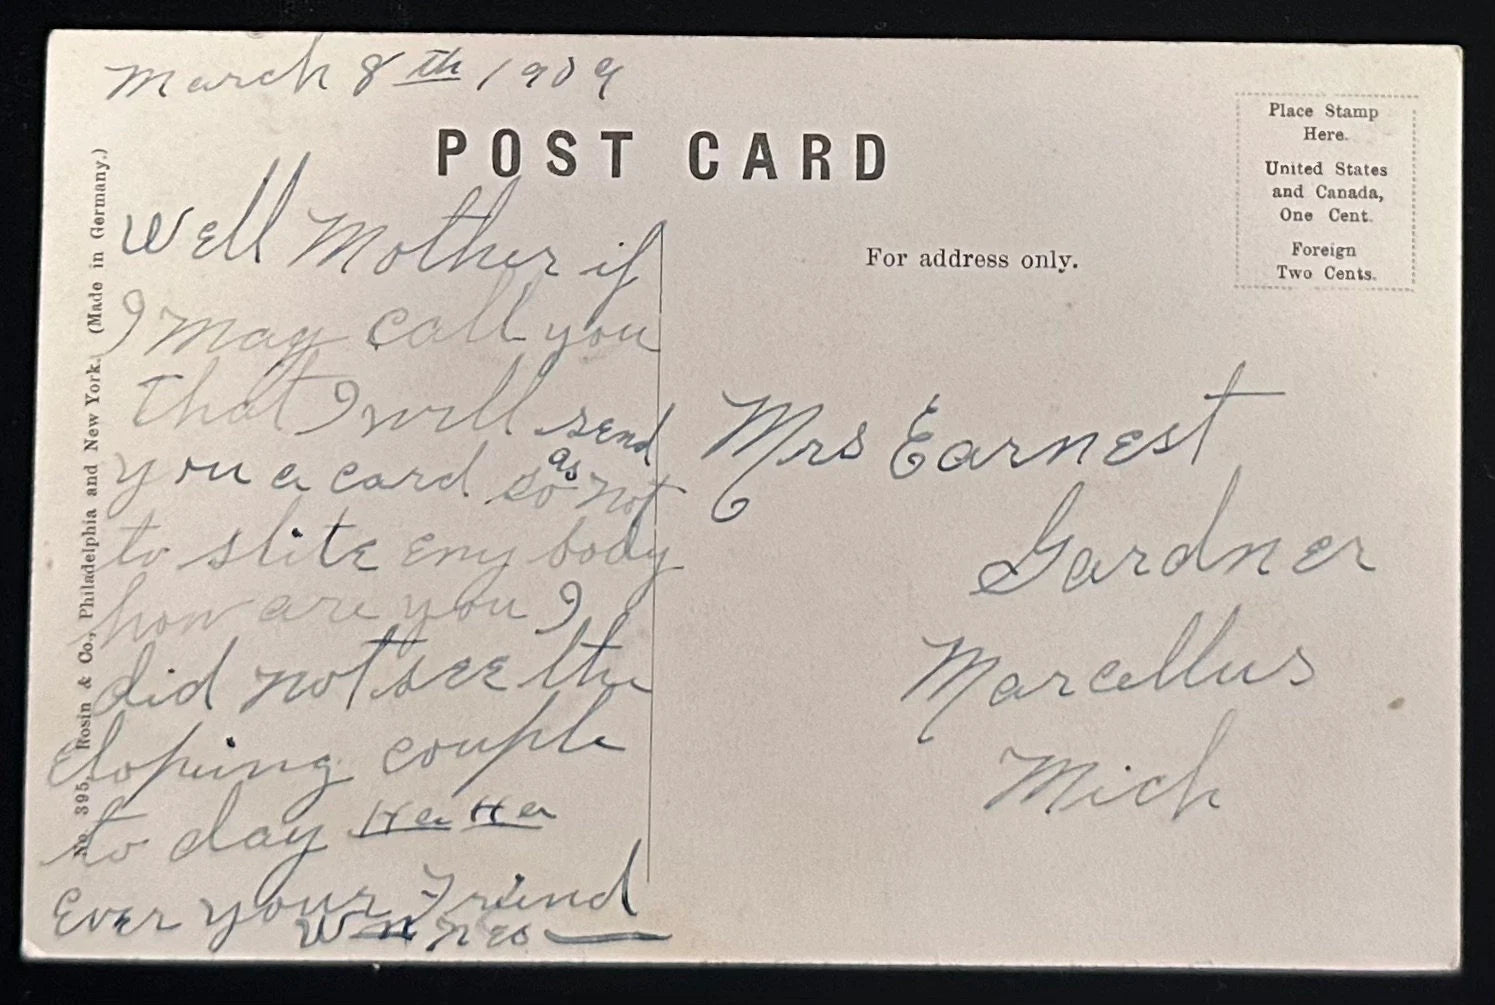 March 8th 1909
POST CARD
Place Stamp
Here.
United States
and Canada,
One Cent.
Foreign
Two Cents.
For address only.
No. 395, Rosin & Co., Philadelphia and New York. (Made in Germany.)
Well Mother if
I may call you
that I will send
you a card so as not
to slite eny body
how are you I
did not see the
Eloping couple
to day Ha Ha
Ever your Friend
Mrs Earnest
Gardner
Marcellus
Mich